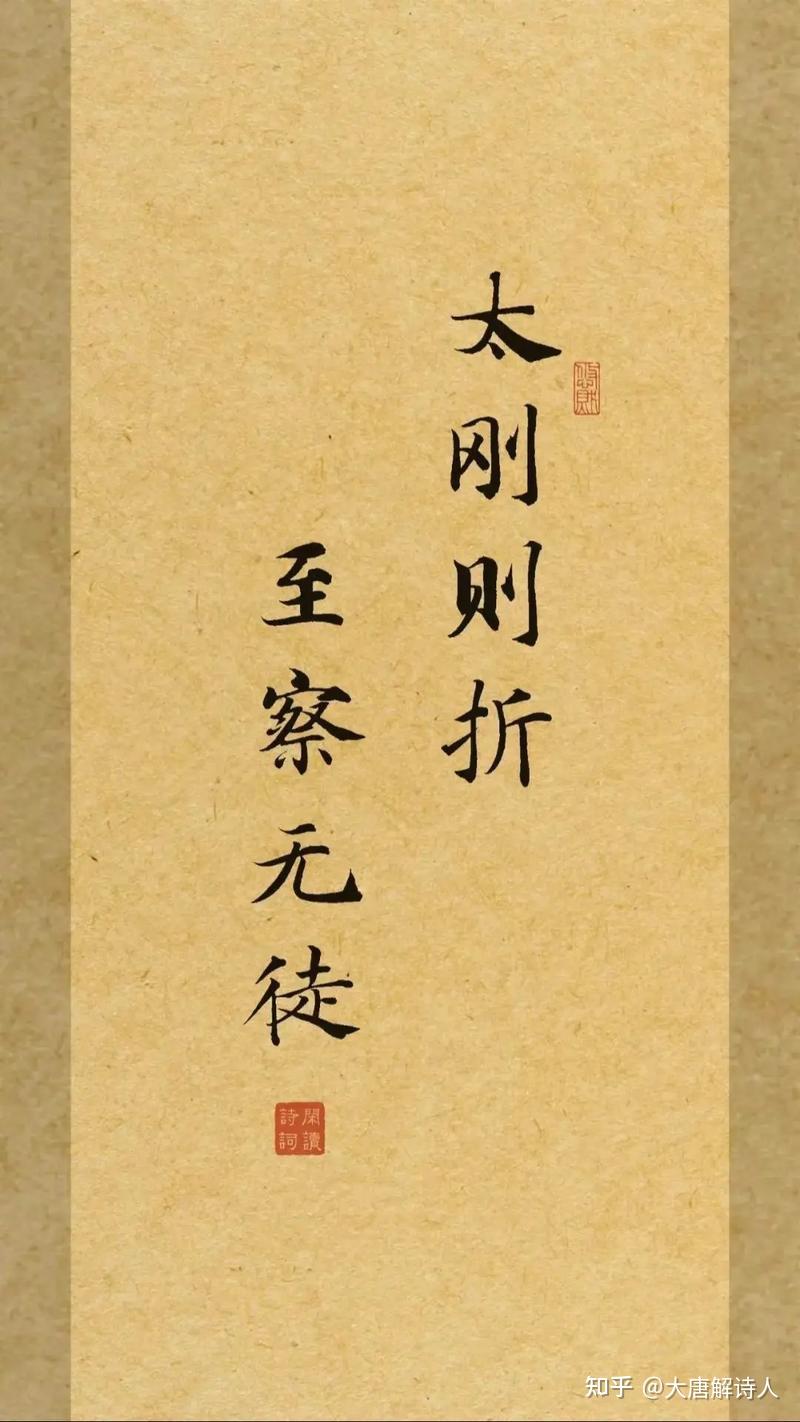 太刚则折
至察无徒
閑讀
詩詞
知乎 @大唐解诗人